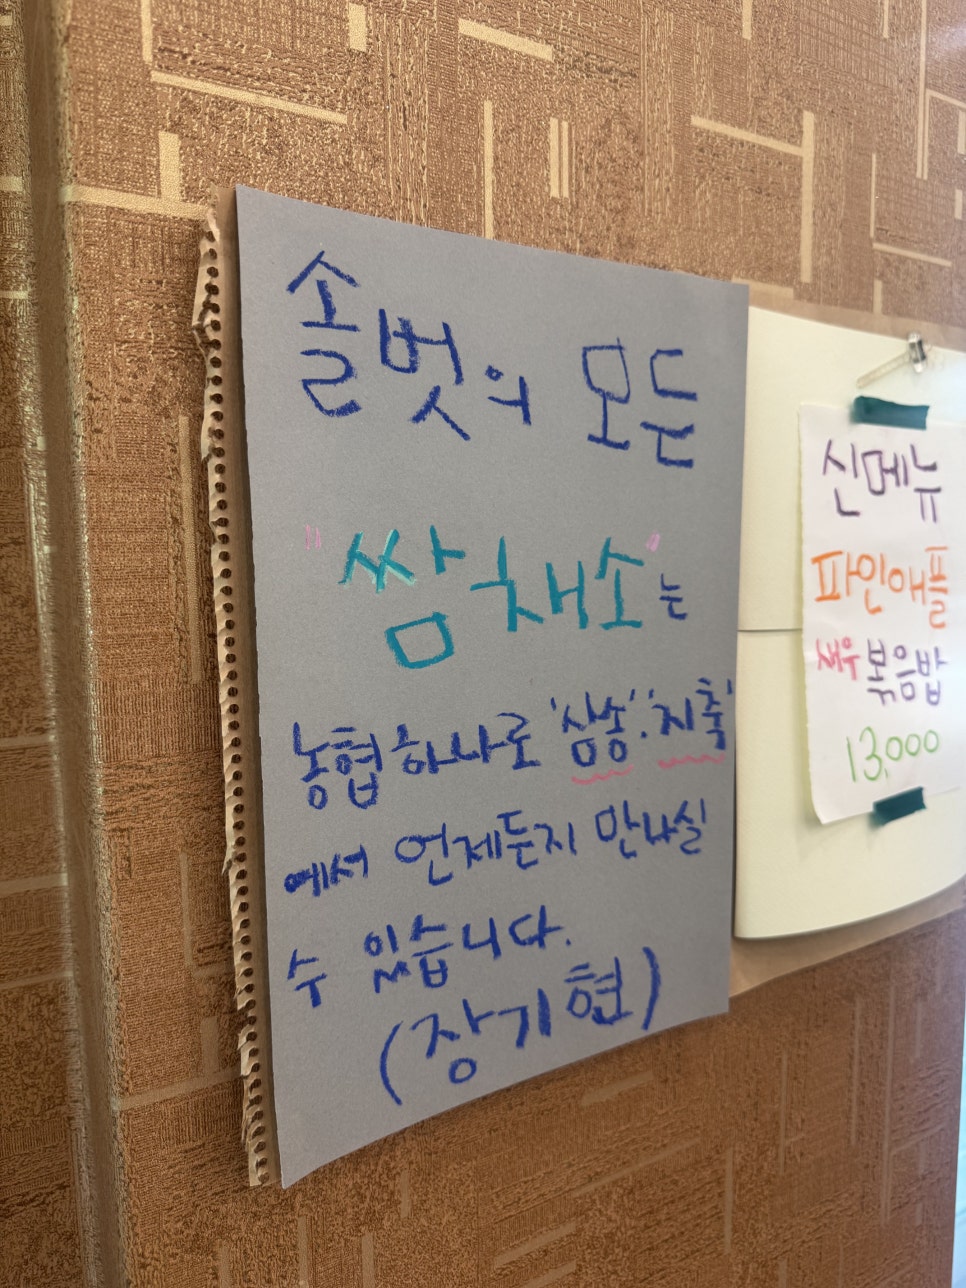 솔벗의 모든
"쌈채소"는
농협하나로 '삼송'.'지축'
에서 언제든지 만나실
수 있습니다.
(장기현)
신메뉴
파인애플
새우볶음밥
13,000